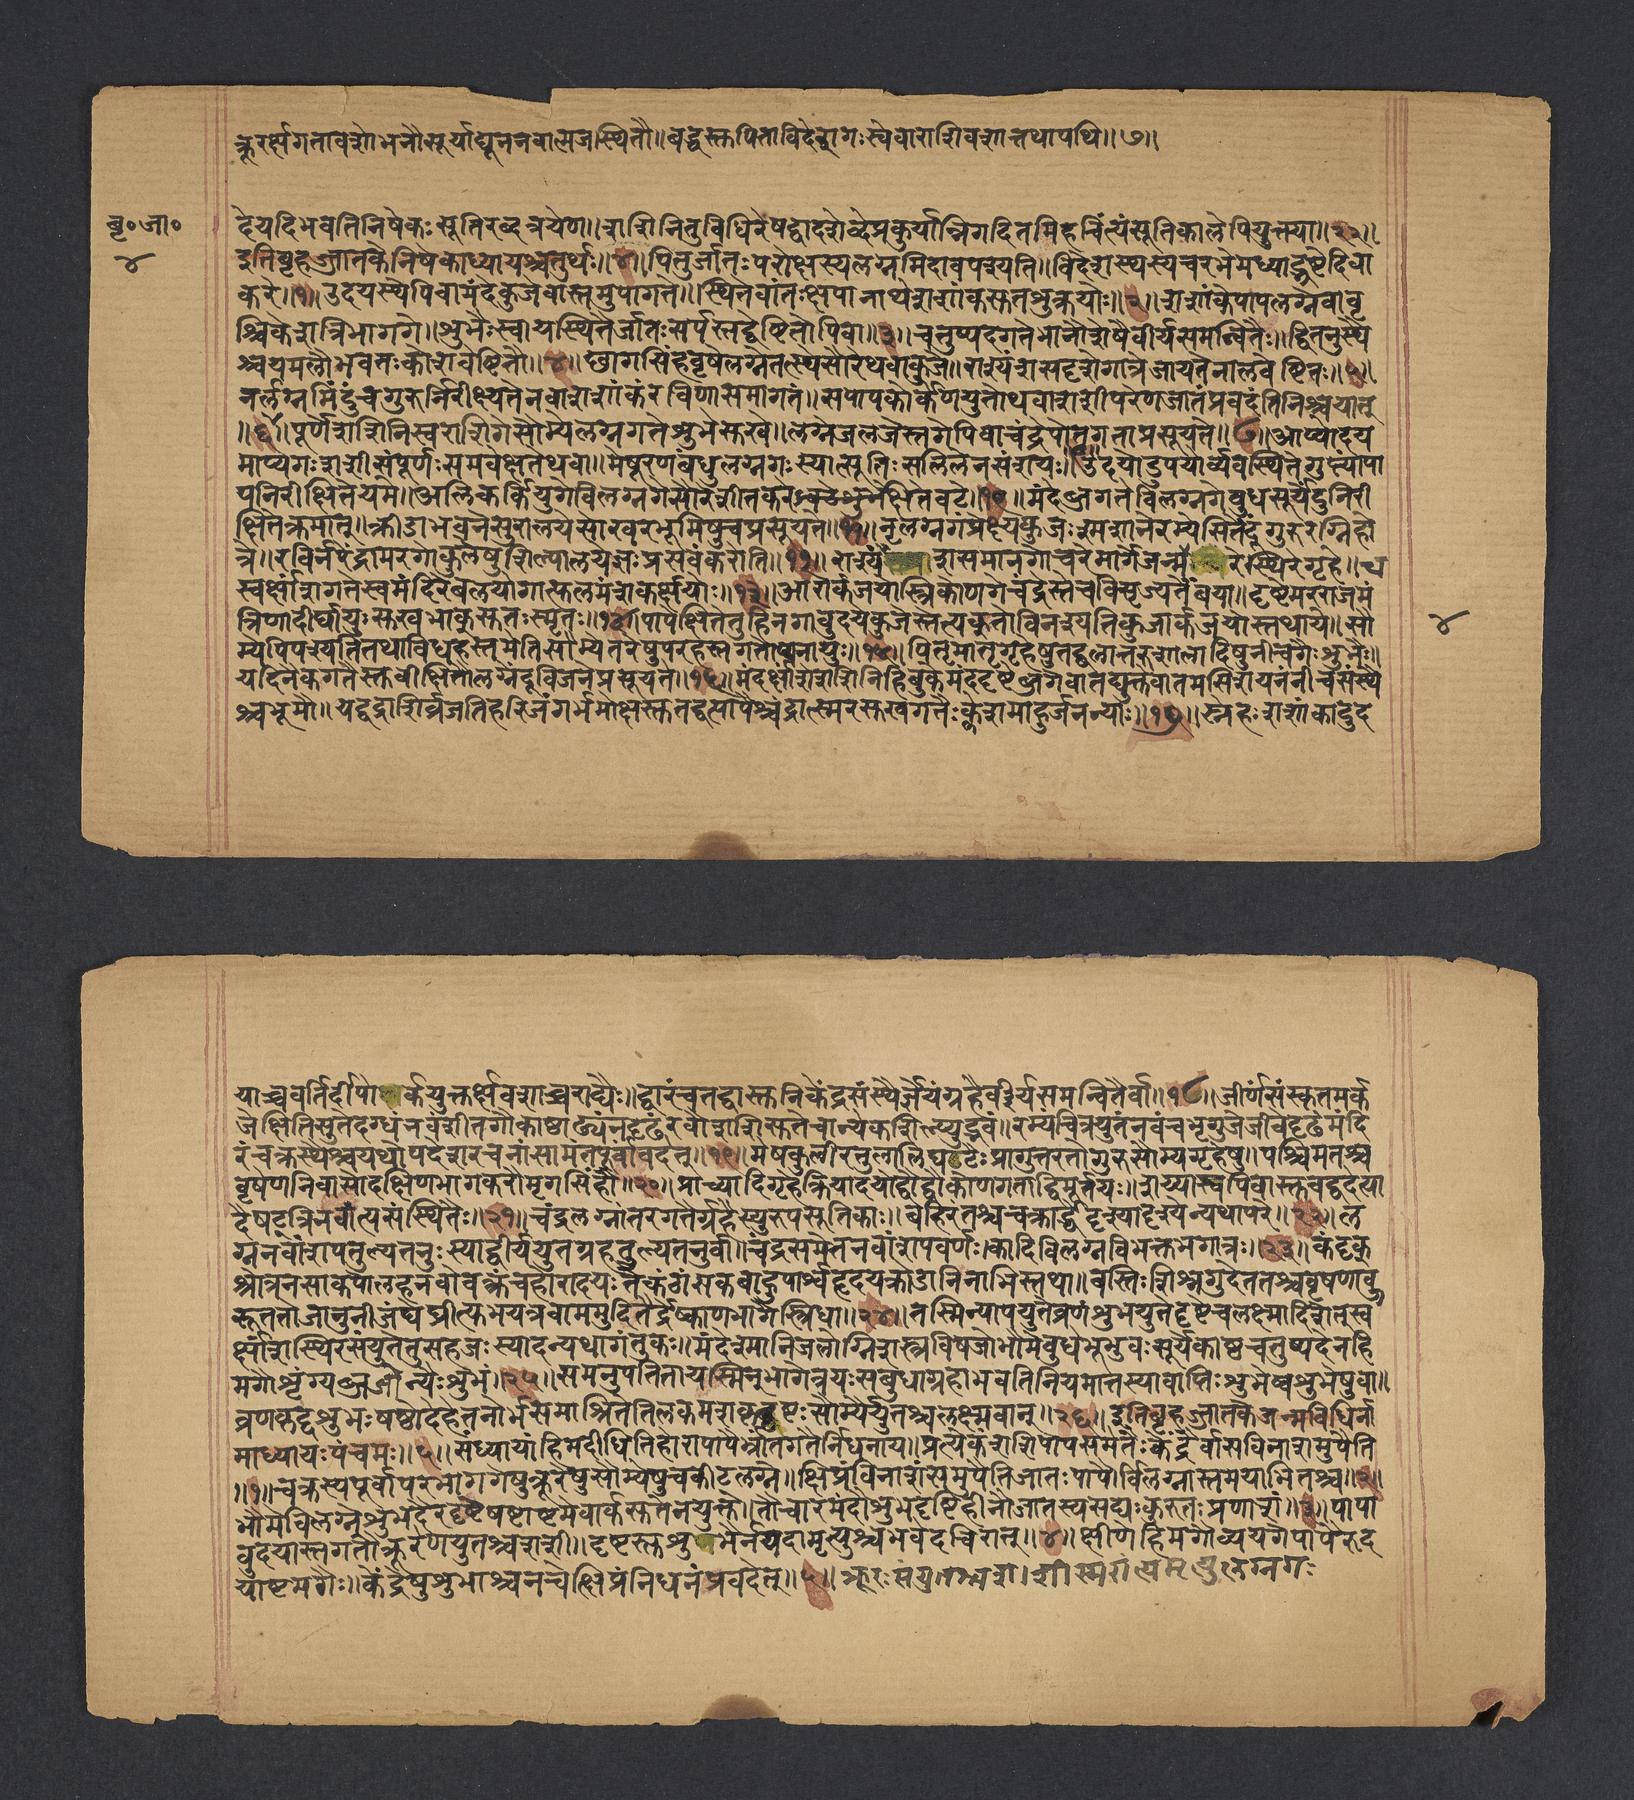 क्रूरर्क्षगतावशोभनौ सूर्याद्यूननवात्मजस्थितौ॥बद्धस्तुपिताविदेशगःस्वेवाराशिवशात्तथापथि॥७॥
बृ॰जा॰
४
दयेयदिभवतिनिषेकःसूतिरब्दत्रयेण॥शशिनितुविधिरेषद्वादशेब्देप्रकुर्यान्निगदितमिहचिंत्यंसूतिकालेपियुक्त्या॥२२॥
इतिबृहज्जातकेनिषेकाध्यायश्चतुर्थः॥४॥पितुर्जातःपरोक्षस्यलग्नमिंदावपश्यति॥विदेशस्थस्यचरभेमध्याद्भ्रष्टेदिवा
करे॥१॥उदयस्थेपिवामंदेकुजेवास्तमुपागते॥स्थितेवांतःक्षपानाथेशशांकसुतशुक्रयोः॥२॥शशांकेपापलग्नेवावृ
श्चिकेशत्रिभागगे॥शुभैःस्वायस्थितैर्जातःसर्पस्तद्वेष्टितोपिवा॥३॥चतुष्पदगतेभानौशेषैर्वीर्यसमन्वितैः॥द्वितनुस्थै
श्चयमलौभवतःकोशवेष्टितौ॥४॥छागसिंहवृषलग्नेतत्स्थेसौरेथवाकुजे॥राश्यंशसदृशेगात्रेजायतेनालवेष्टितः॥५॥
नर्लग्नमिंदुंचगुरुर्निरीक्ष्यतेनवाशशांकंरविणासमागतं॥सपापकोर्केणयुतोथवाशशीपरेणजातंप्रवदंतिनिश्चयात्
॥६॥पूर्णेशशिनिस्वराशिगेसौम्येलग्नगतेशुभेसुखे॥लग्नेजलजेस्तगेपिवाचंद्रेपोतगताप्रसूयते॥७॥आप्योदय
माप्यगःशशीसंपूर्णःसमवेक्षतेथवा॥मेषूरणबंधुलग्नगःस्यात्सूतिःसलिलेनसंशयः॥८॥उदयोडुपयोर्व्ययस्थितेगुप्त्यांपा
पनिरीक्षितेयमे॥अलिकर्कियुगेविलग्नगेसौरेशीतकरेक्षितेवटे॥१०॥मंदेब्जगतेविलग्नगेबुधसूर्येंदुनिरी
क्षितेक्रमात्॥क्रीडाभवनेसुरालयेसोखरभूमिषुचप्रसूयते॥११॥नृलग्नगंप्रेक्ष्यकुजःश्मशानेरम्येसितेंदूगुरुरग्निहो
त्रे॥रविर्नरेंद्रामरगोकुलेषुशिल्पालयेज्ञःप्रसवंकरोति॥१२॥राश्यंशसमानगोचरेमार्गेजन्मरेस्थिरेगृहे॥
स्वर्क्षांशगतेस्वमंदिरेबलयोगात्फलमंशकर्क्षयोः॥१३॥आरार्कजयोस्त्रिकोणगेचंद्रेस्तेचविसृज्यतेंबया॥दृष्टेमरराजमं
त्रिणादीर्घायुःसुखभाक्चसस्मृतः॥१४॥पापेक्षितेतुहिनगावुदयेकुजेस्तेत्यक्तोविनश्यतिकुजार्कजयोस्तथाये॥सौ
म्येपिपश्यतितथाविधहस्तमेतिसौम्येतरेषुपरहस्तगतोप्यनायुः॥१५॥पितृमातृगृहेषुतद्बलात्तरुशालादिषुनीचगैःशुभैः॥
यदिनैकगतैस्तुवीक्षितौलग्नेंदूविजनेप्रसूयते॥१६॥मंदर्क्षांशेशशिनिहिबुकेमंददृष्टेब्जगेवातद्युक्तेवातमसिशयनंनीचसंस्थै
श्चभूमौ॥यद्वद्राशिर्व्रजतिहरिजंगर्भमोक्षस्तुतद्वत्पापैश्चंद्रात्स्मरसुखगतैःक्लेशमाहुर्जनन्याः॥१७॥स्नेहःशशांकादुद
४
याच्चवर्तिर्दीपोर्कयुक्तर्क्षवशाच्चराद्यैः॥द्वारंचतद्वास्तुनिकेंद्रसंस्थैर्ज्ञेयंग्रहैर्वीर्यसमन्वितैर्वा॥१८॥जीर्णंसंस्कृतमर्क
जेक्षितिसुतेदग्धंनवंशीतगौकाष्ठाढ्यंनदृढंरवौशशिसुतेचानेकशिल्प्युद्भवं॥रम्यंचित्रयुतंनवंचभृगुजेजीवेदृढंमंदि
रंचक्रस्थैश्चयथोपदेशरचनांसामंतपूर्वांवदेत्॥१९॥मेषकुलीरतुलालिघटैःप्रागुत्तरतोगुरुसौम्यगृहेषु॥पश्चिमतश्च
वृषेणनिवासोदक्षिणभागकरौमृगसिंहौ॥२०॥प्राच्यादिगृहेक्रियादयोद्वौद्वौकोणगताद्विमूर्तयः॥शय्यास्वपिवास्तुवद्वदेत्पा
दैःषट्त्रिनवांत्यसंस्थितैः॥२१॥चंद्रलग्नांतरगतैर्ग्रहैःस्युरुपसूतिकाः॥बहिरंतश्चचक्रार्द्धेदृश्यादृश्येन्यथापरे॥२२॥ल
ग्ननवांशपतुल्यतनुःस्याद्वीर्ययुतग्रहतुल्यतनुर्वा॥चंद्रसमेतनवांशपवर्णःकादिविलग्नविभक्तभगात्रः॥२३॥कंदृक्
श्रोत्रनसाकपोलहनवोवक्त्रंचहोरादयःतेकंठांसकबाहुपार्श्वहृदयक्रोडानिनाभिस्तथा॥बस्तिःशिश्नगुदेततश्चवृषणावू
रूततोजानुनीजंघेघ्रीत्युभयत्रवाममुदितैर्द्रेष्काणभागैस्त्रिधा॥२४॥तस्मिन्पापयुतेव्रणंशुभयुतेदृष्टेचलक्ष्मादिशेत्स्व
र्क्षांशेस्थिरसंयुतेतुसहजःस्यादन्यथागंतुकः॥मंदेश्मानिलजोग्निशस्त्रविषजोभौमेबुधेभूभुवःसूर्येकाष्ठचतुष्पदेनहि
मगौशृंग्यब्जजोन्यैःशुभं॥२५॥समनुपतितायस्मिन्भागेत्रयःसबुधाग्रहाभवतिनियमात्तस्यावाप्तिःशुभेष्वशुभेषुवा॥
व्रणकृदशुभःषष्ठोदेहेतनोर्भसमाश्रितेतिलकमशकृद्दृष्टःसौम्यैर्युतश्चलक्ष्मवान्॥२६॥इतिबृहज्जातकेजन्मविधिर्ना
माध्यायःपंचमः॥५॥संध्यायांहिमदीधितिहोरापापैर्भांतगतैर्निधनाय॥प्रत्येकंशशिपापसमेतैःकेंद्रैर्वासविनाशमुपैति
॥१॥चक्रस्यपूर्वापरभागगेषुक्रूरेषुसौम्येषुचकीटलग्ने॥क्षिप्रंविनाशंसमुपैतिजातःपापैर्विलग्नास्तमयाभितश्च॥२॥
वुदयास्तगतौक्रूरेणयुतश्चशशी॥दृष्टश्चशुभैर्नयदामृत्युश्चभवेदचिरात्॥४॥क्षीणेहिमगौव्ययगेपापैरुद
याष्टमगैः॥केंद्रेषुशुभाश्चनचेत्क्षिप्रंनिधनंप्रवदेत्॥५॥क्रूरःसंयुतश्चशशीस्मरांत्यमृत्युलग्नगः